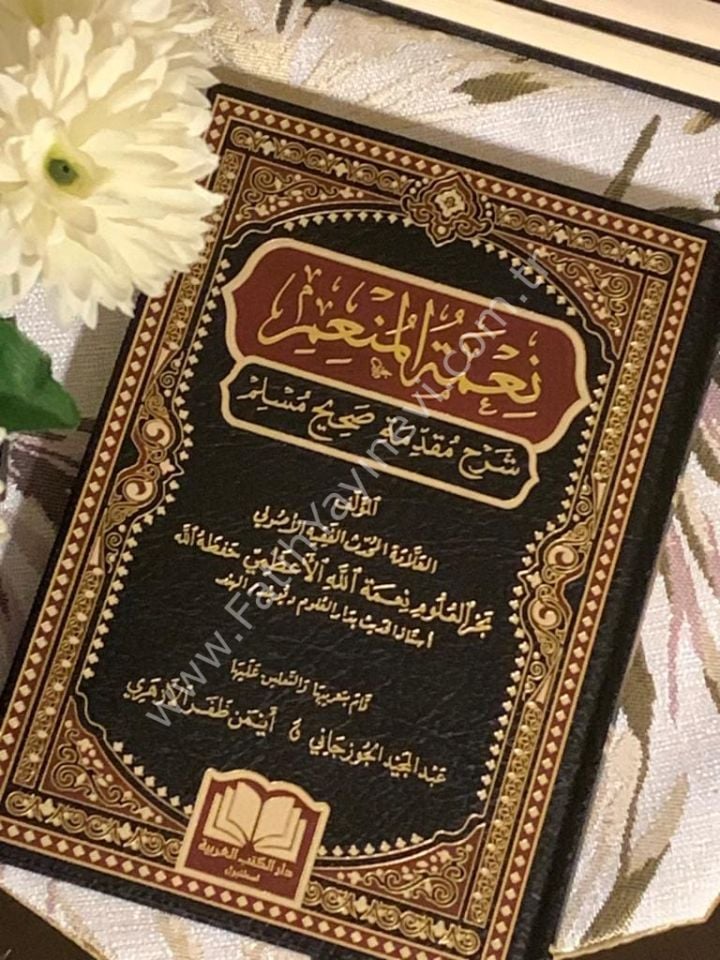 نِعْمَةُ المُنْعِمِ
شَرْح مُقَدِّمَة صَحِيح مُسْلِم
المؤلف
العلامة المحدث الفقيه الأصولي
بحر العلوم نعمة الله الأعظمي حفظه الله
أستاذ الحديث بدار العلوم ديوبند، الهند
قام بتعريبها والتعليق عليها
عبد المجيد الجوزجاني & أيمن ظفر الأزهري
دار الكتب العربية
استنبول
www.FatihYayinevi.com.tr